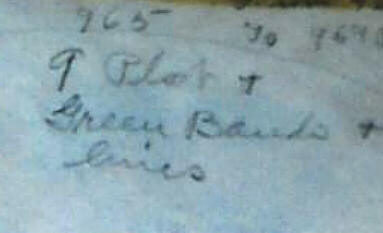 965 To 969
9 Plot +
Green Bands +
lines